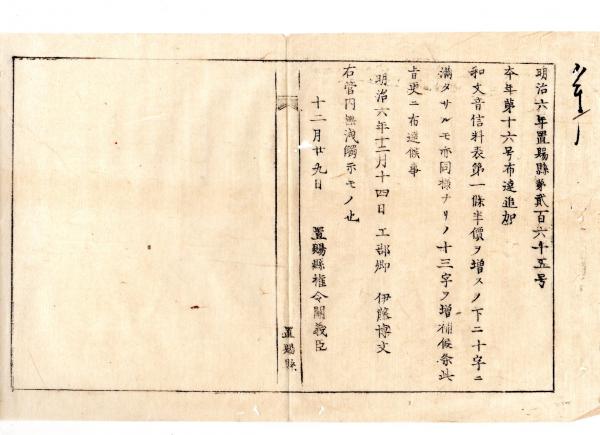 明治六年置賜縣第貳百六十五号
本年第十六号布達追加
和文音信料表第一條半價ヲ増スノ下二十字ニ
満タサルモ亦同様ナリノ十三字ヲ増補候条此
旨更ニ布達候事
明治六年十二月十四日 工部卿 伊藤博文
右管内無洩觸示モノ也
十二月廿九日 置賜縣權令關義臣
置賜縣